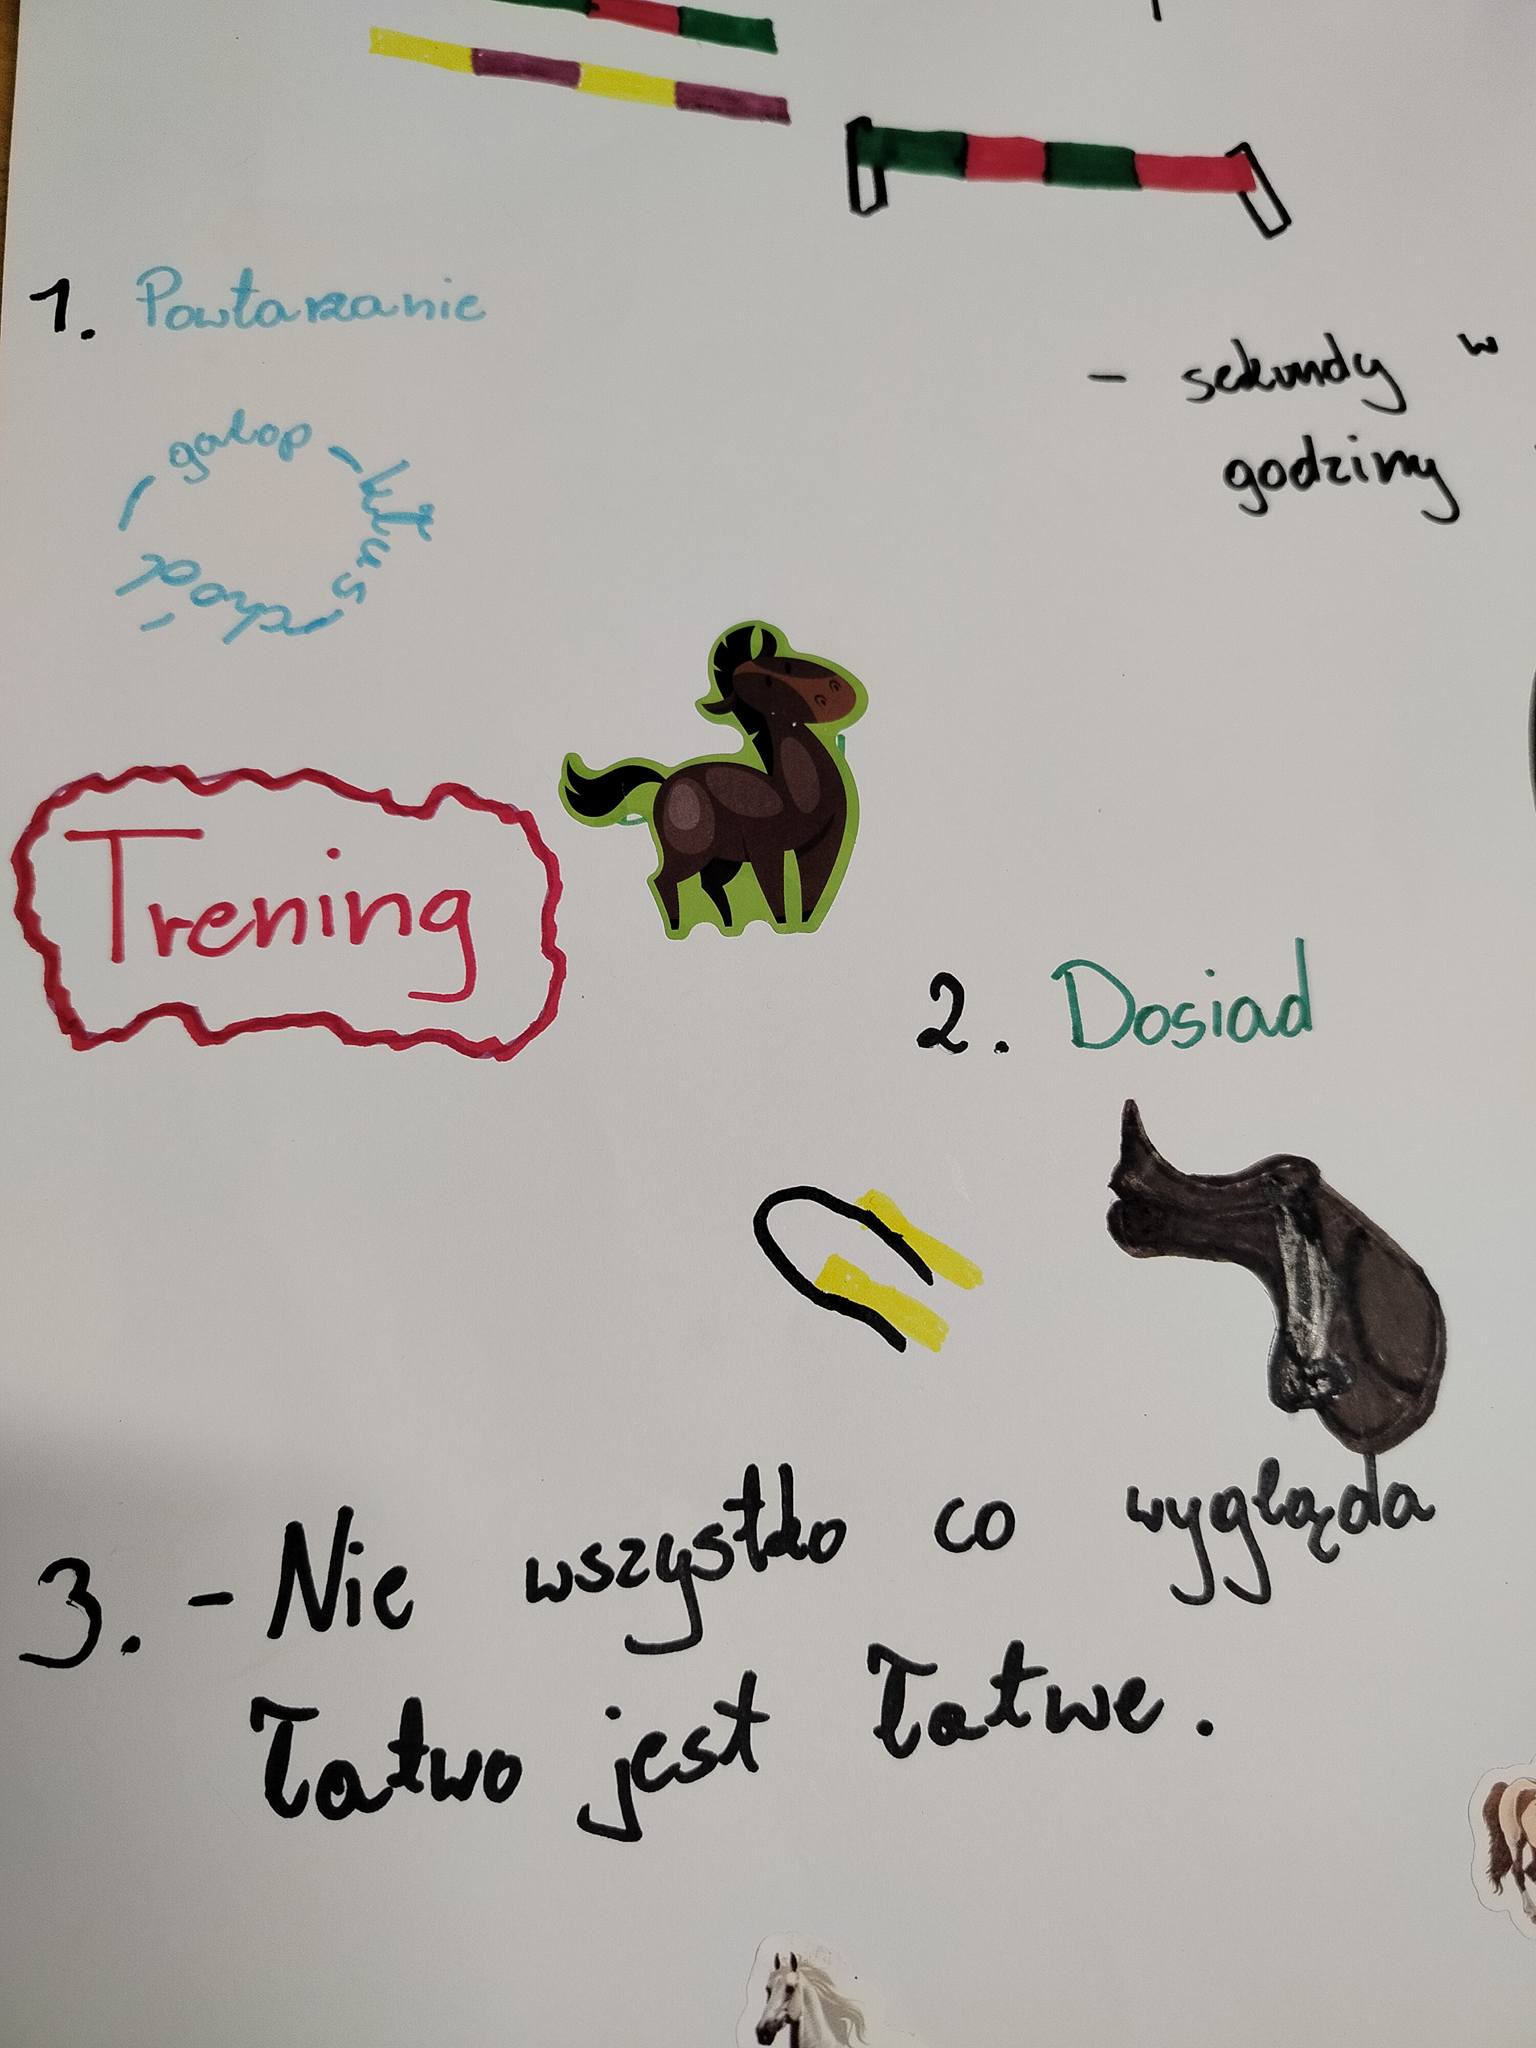 1. Powtarzanie
- sekundy w
godziny
galop - kłus
- chód -
Trening
2. Dosiad
3. - Nie wszystko co wygląda
łatwo jest łatwe.